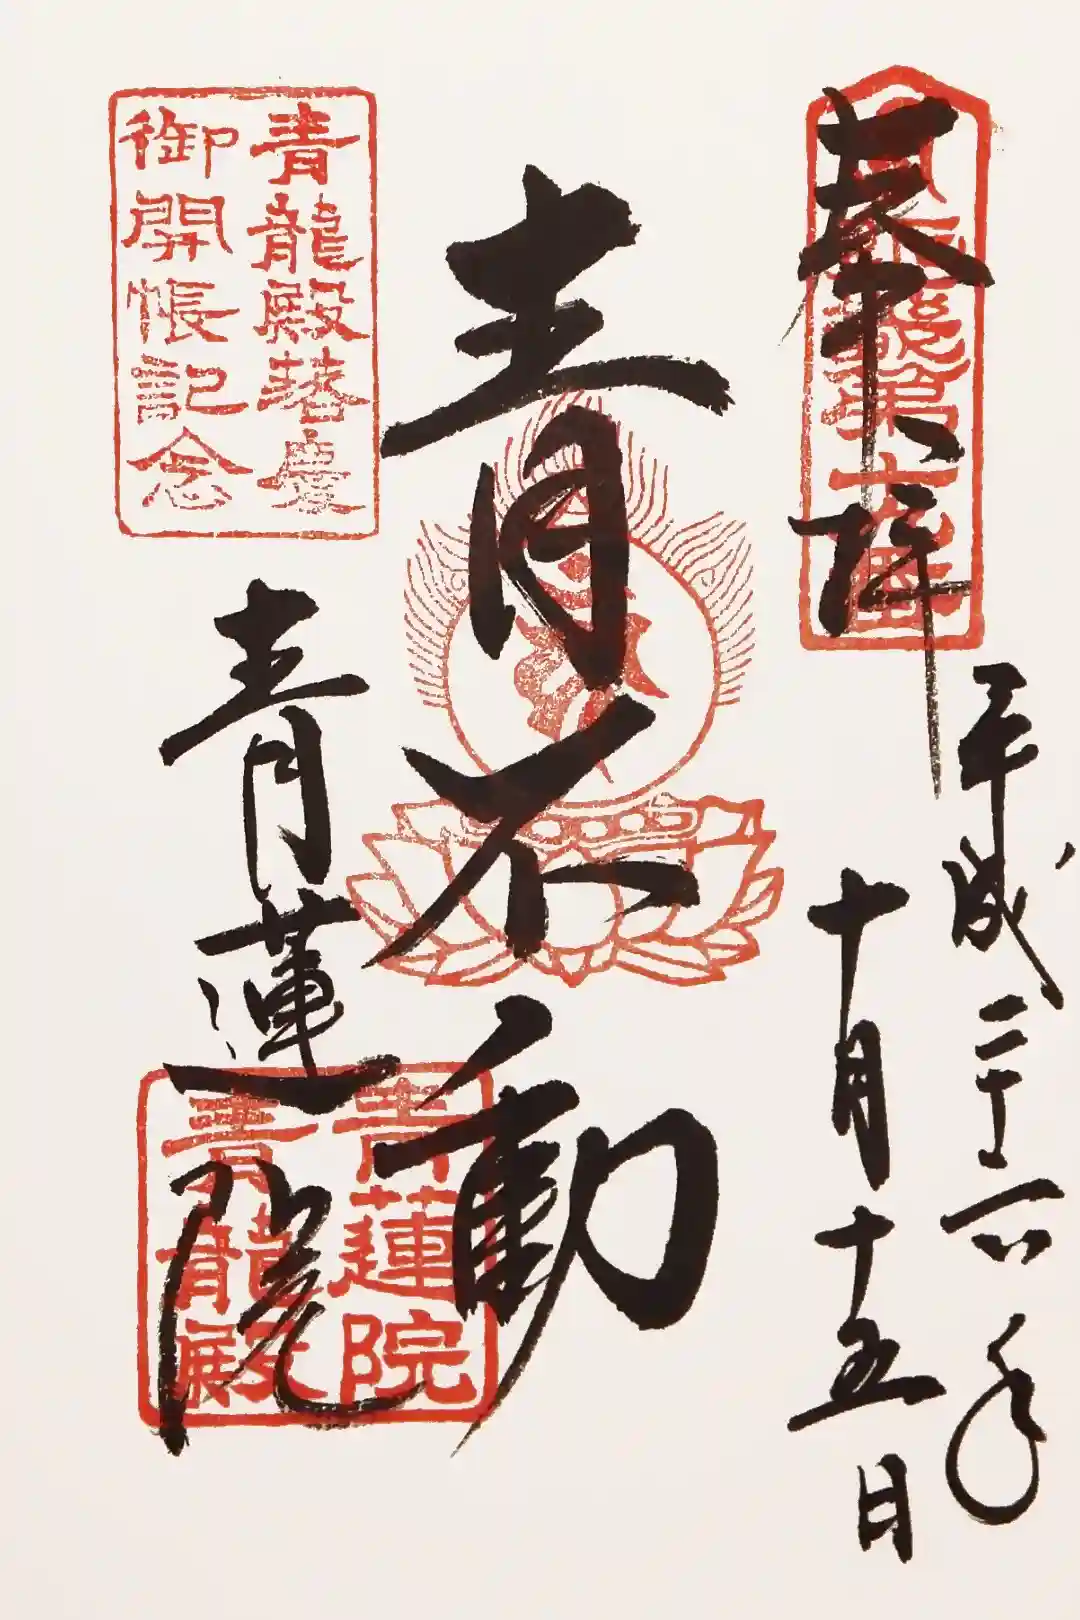 奉拝
平成二十六年
十月十五日
青不動
青龍殿落慶
御開帳記念
青蓮院
青蓮院
青龍殿